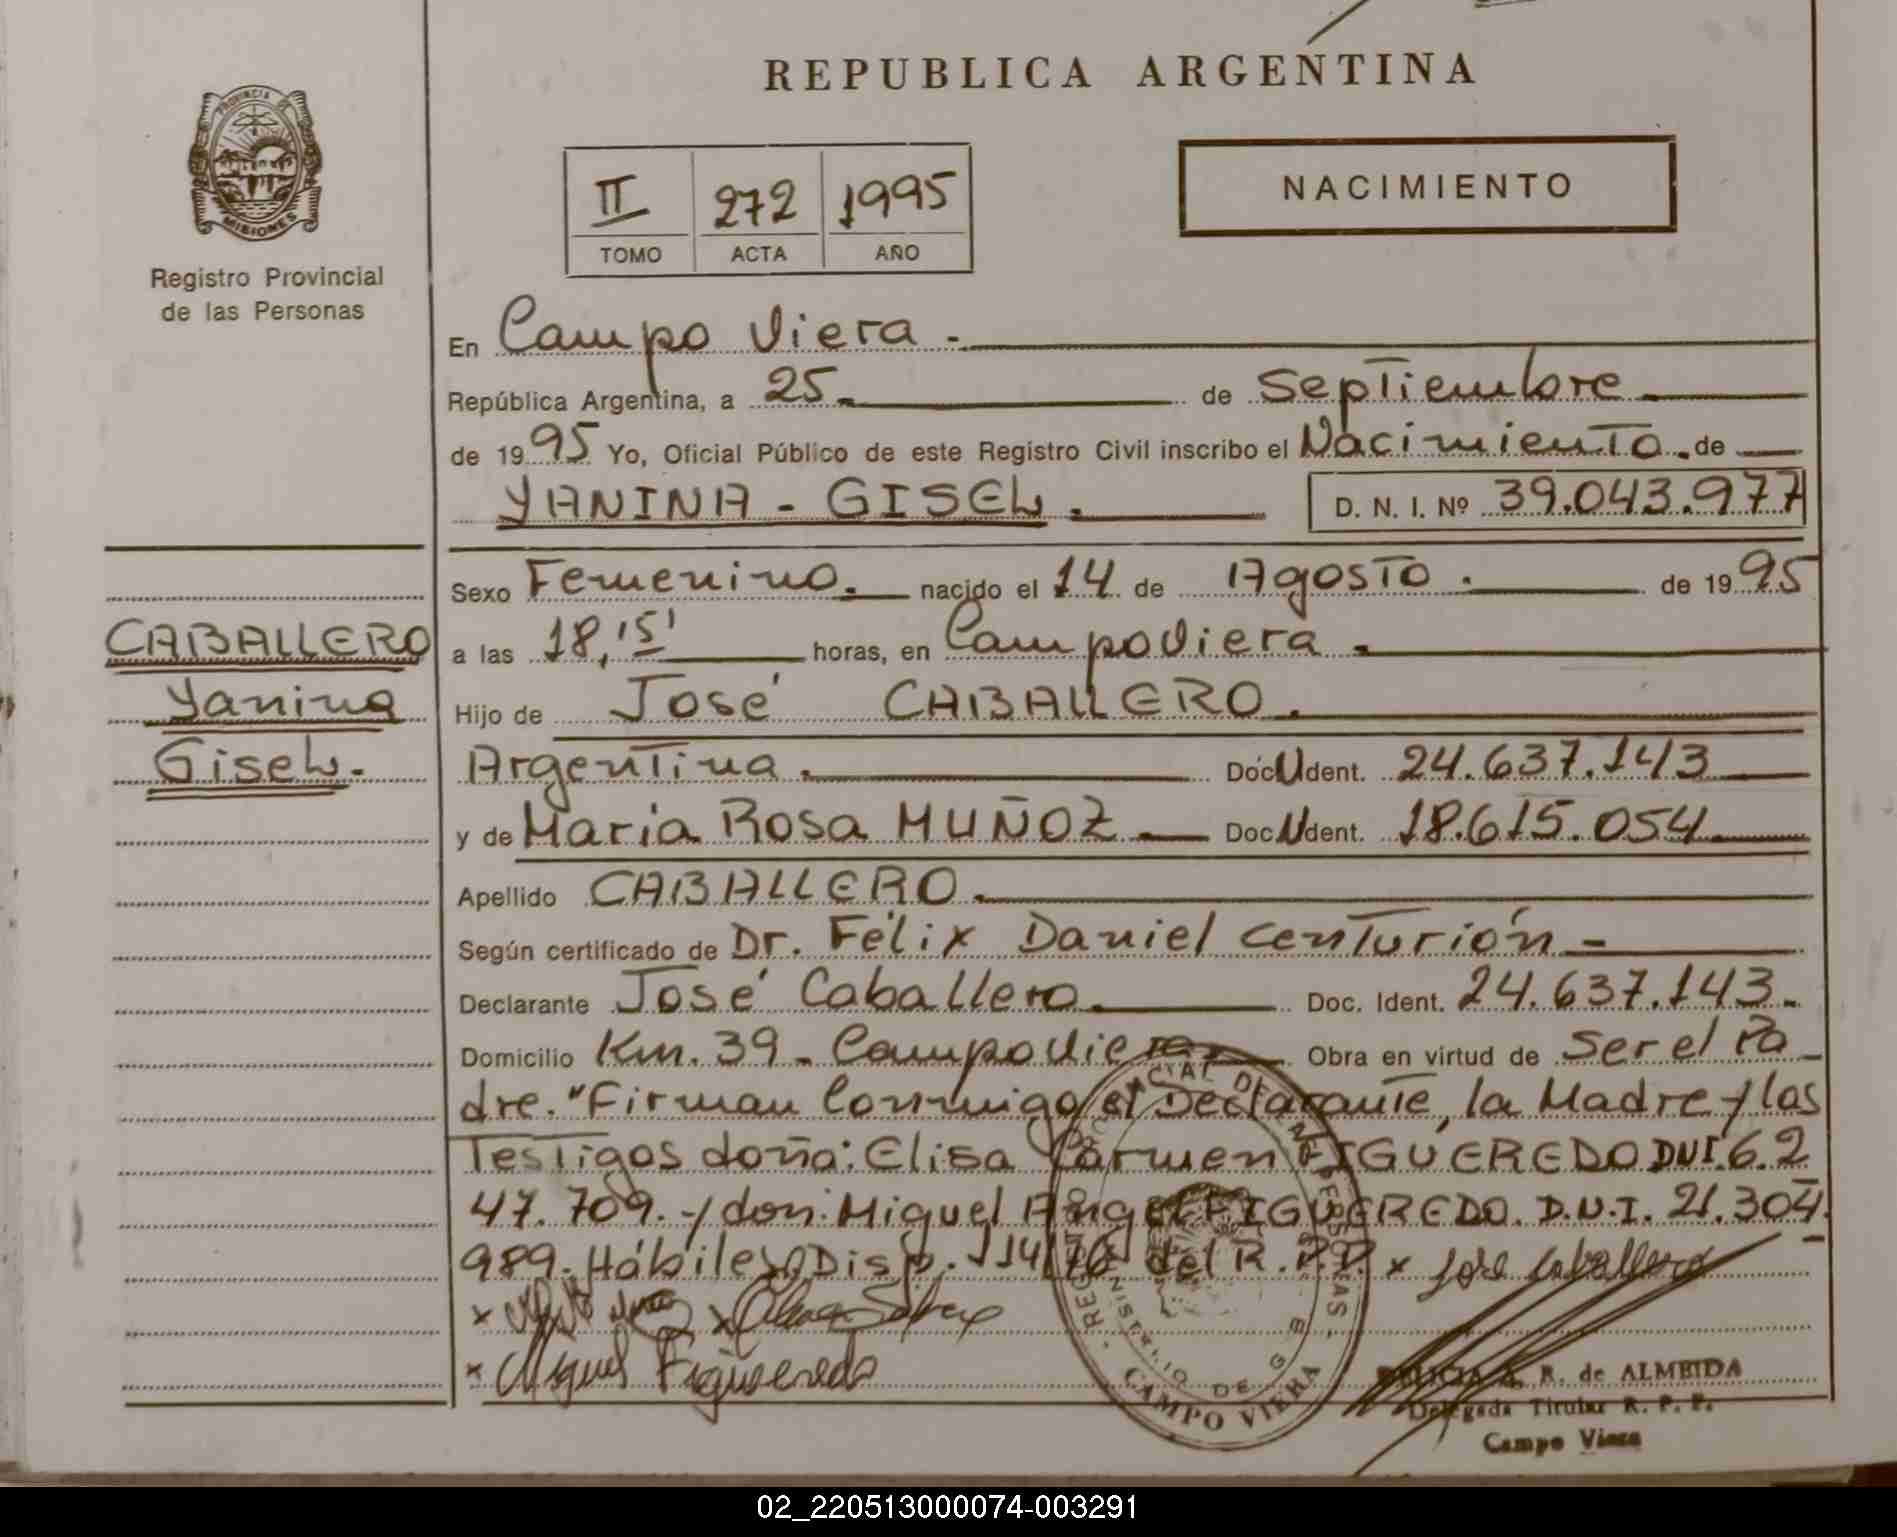 REPUBLICA ARGENTINA
PROVINCIA DE
MISIONES
Registro Provincial
de las Personas
II 272 1995
TOMO ACTA AÑO
NACIMIENTO
En Campo Viera.-
República Argentina, a 25.- de Septiembre.-
de 1995 Yo, Oficial Público de este Registro Civil inscribo el Nacimiento.de
YANINA - GISEL.- D. N. I. Nº 39.043.977
Sexo Femenino.- nacido el 14 de Agosto.- de 1995
CABALLERO
a las 18,15' horas, en Campo Viera.-
Yanina
Hijo de José CABALLERO.-
Gisel.
Argentina.- Doc. Ident. 24.637.143
y de María Rosa MUÑOZ.- Doc. Ident. 18.615.054
Apellido CABALLERO.-
Según certificado de Dr. Félix Daniel Centurión.-
Declarante José Caballero.- Doc. Ident. 24.637.143.-
Domicilio Km. 39.- Campo Viera.- Obra en virtud de Ser el Pa-
dre. "Firman Conmigo el Declarante, la Madre y los
Testigos doña: Elisa Carmen FIGUEREDO DNI. 6.2
47.709.-y don: Miguel Angel FIGUEREDO. D.N.I. 21.304.
989.-Hábiles Disp. 114/76 del R.P.P. x José Caballero
x
x Miguel Figueredo
REGISTRO PROVINCIAL DE LAS PERSONAS
MINISTERIO DE G E
CAMPO VIERA
A. R. de ALMEIDA
Delegada Titular R. P. P.
Campo Viera
02_220513000074-003291